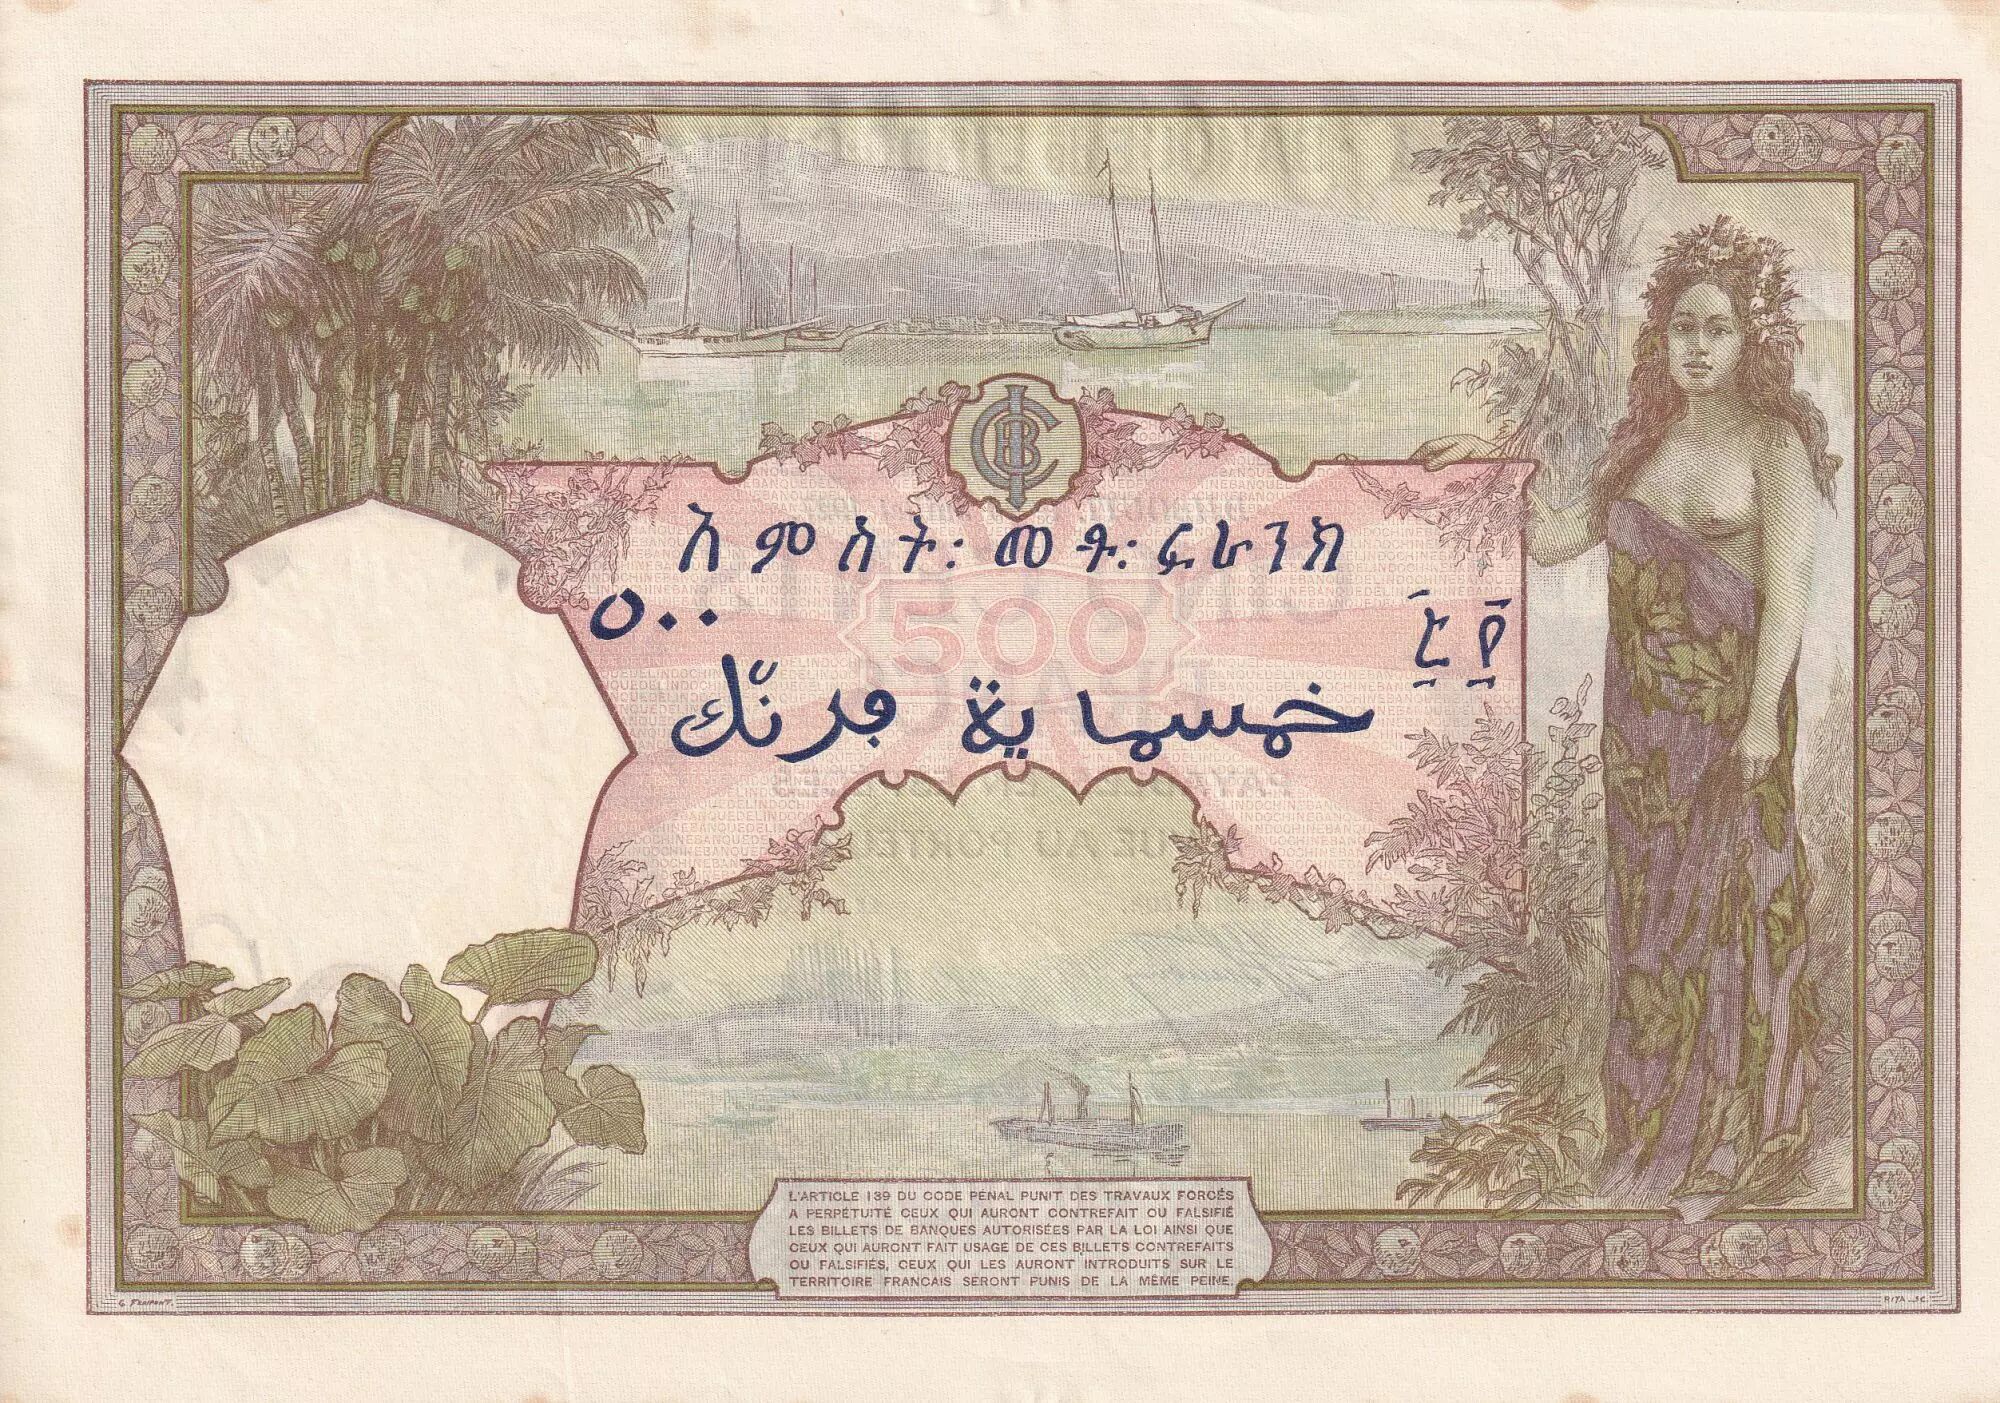 አምስት፡መቶ፡ፍራንክ
٥٠٠
500
፭ ፻
خمسماية فرنك
L'ARTICLE 139 DU CODE PÉNAL PUNIT DES TRAVAUX FORCÉS
A PERPÉTUITÉ CEUX QUI AURONT CONTREFAIT OU FALSIFIÉ
LES BILLETS DE BANQUES AUTORISÉES PAR LA LOI AINSI QUE
CEUX QUI AURONT FAIT USAGE DE CES BILLETS CONTREFAITS
OU FALSIFIÉS, CEUX QUI LES AURONT INTRODUITS SUR LE
TERRITOIRE FRANÇAIS SERONT PUNIS DE LA MÊME PEINE.
G. FRAIPONT.
RITA_SC.